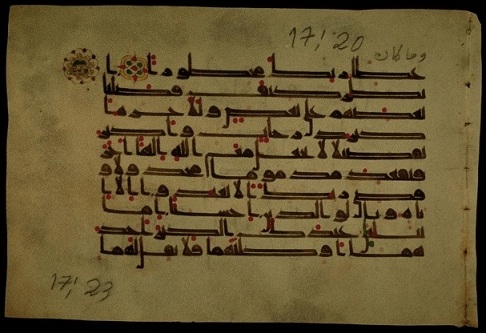 17, 20
وما كان
عطا ربك محظورا ا
نظر كيف فضلنا
بعضهم على بعض وللاخرة ا
كبر درجت واكبر
تفضيلا لا تجعل مع الله الها اخر
فتقعد مذموما مخذولا و
قضى ربك الا تعبدوا الا ا
ياه وبالولدين احسنا اما
يبلغن عندك الكبر احد
هما او كلاهما فلا تقل لهما
17, 23